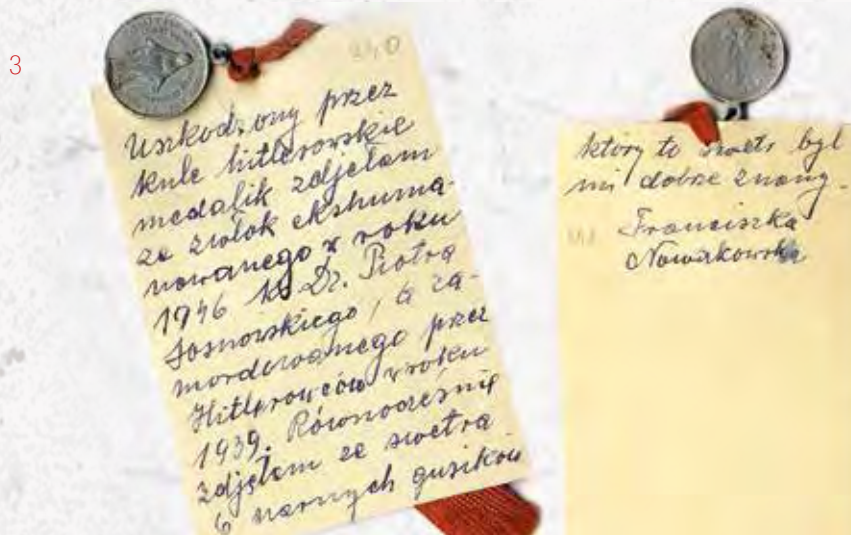 3
240
Uszkodzony przez
kule hitlerowskie
medalik zdjęłam
ze zwłok ekshumo-
wanego w roku
1946 ks. Dr. Piotra
Sosnowskiego, a za-
mordowanego przez
Hitlerowców w roku
1939. Równocześnie
zdjęłam ze swetra
6 czarnych guzików
który to swetr był
mi dobrze znany.
Franciszka
Nowakowska